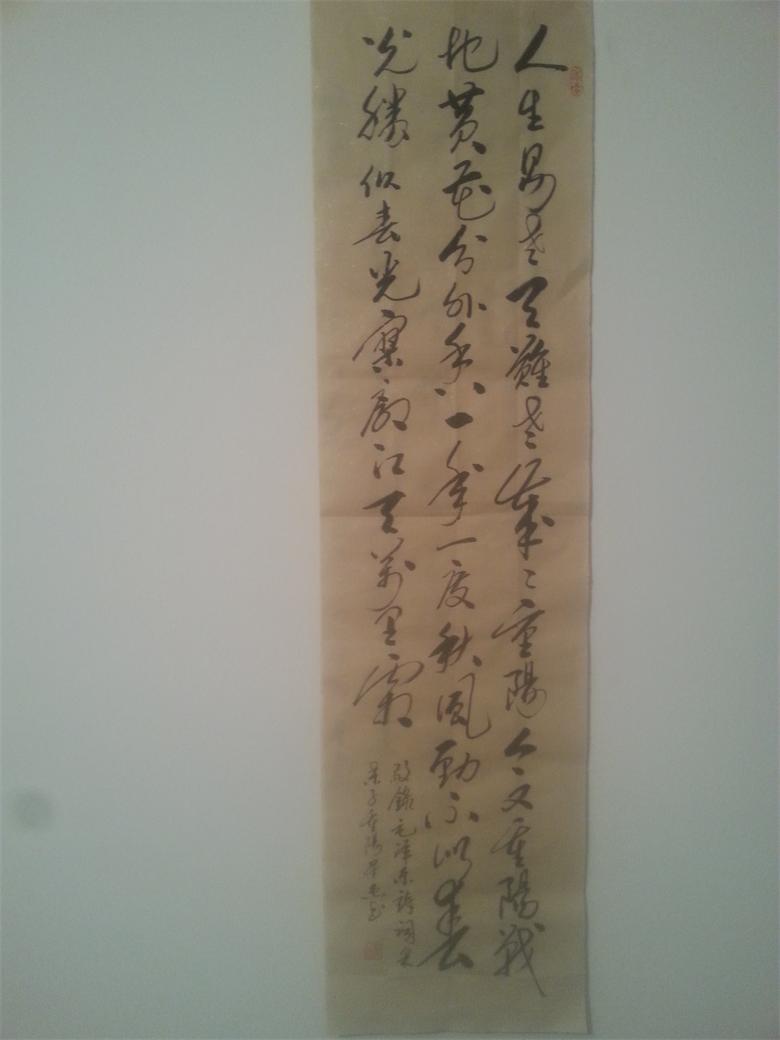 人生易老天難老歲〻重陽今又重陽戰
地黄花分外香一年一度秋風勁不似春
光勝似春光寥廓江天萬里霜
敬錄毛澤東詩詞采
桑子重陽